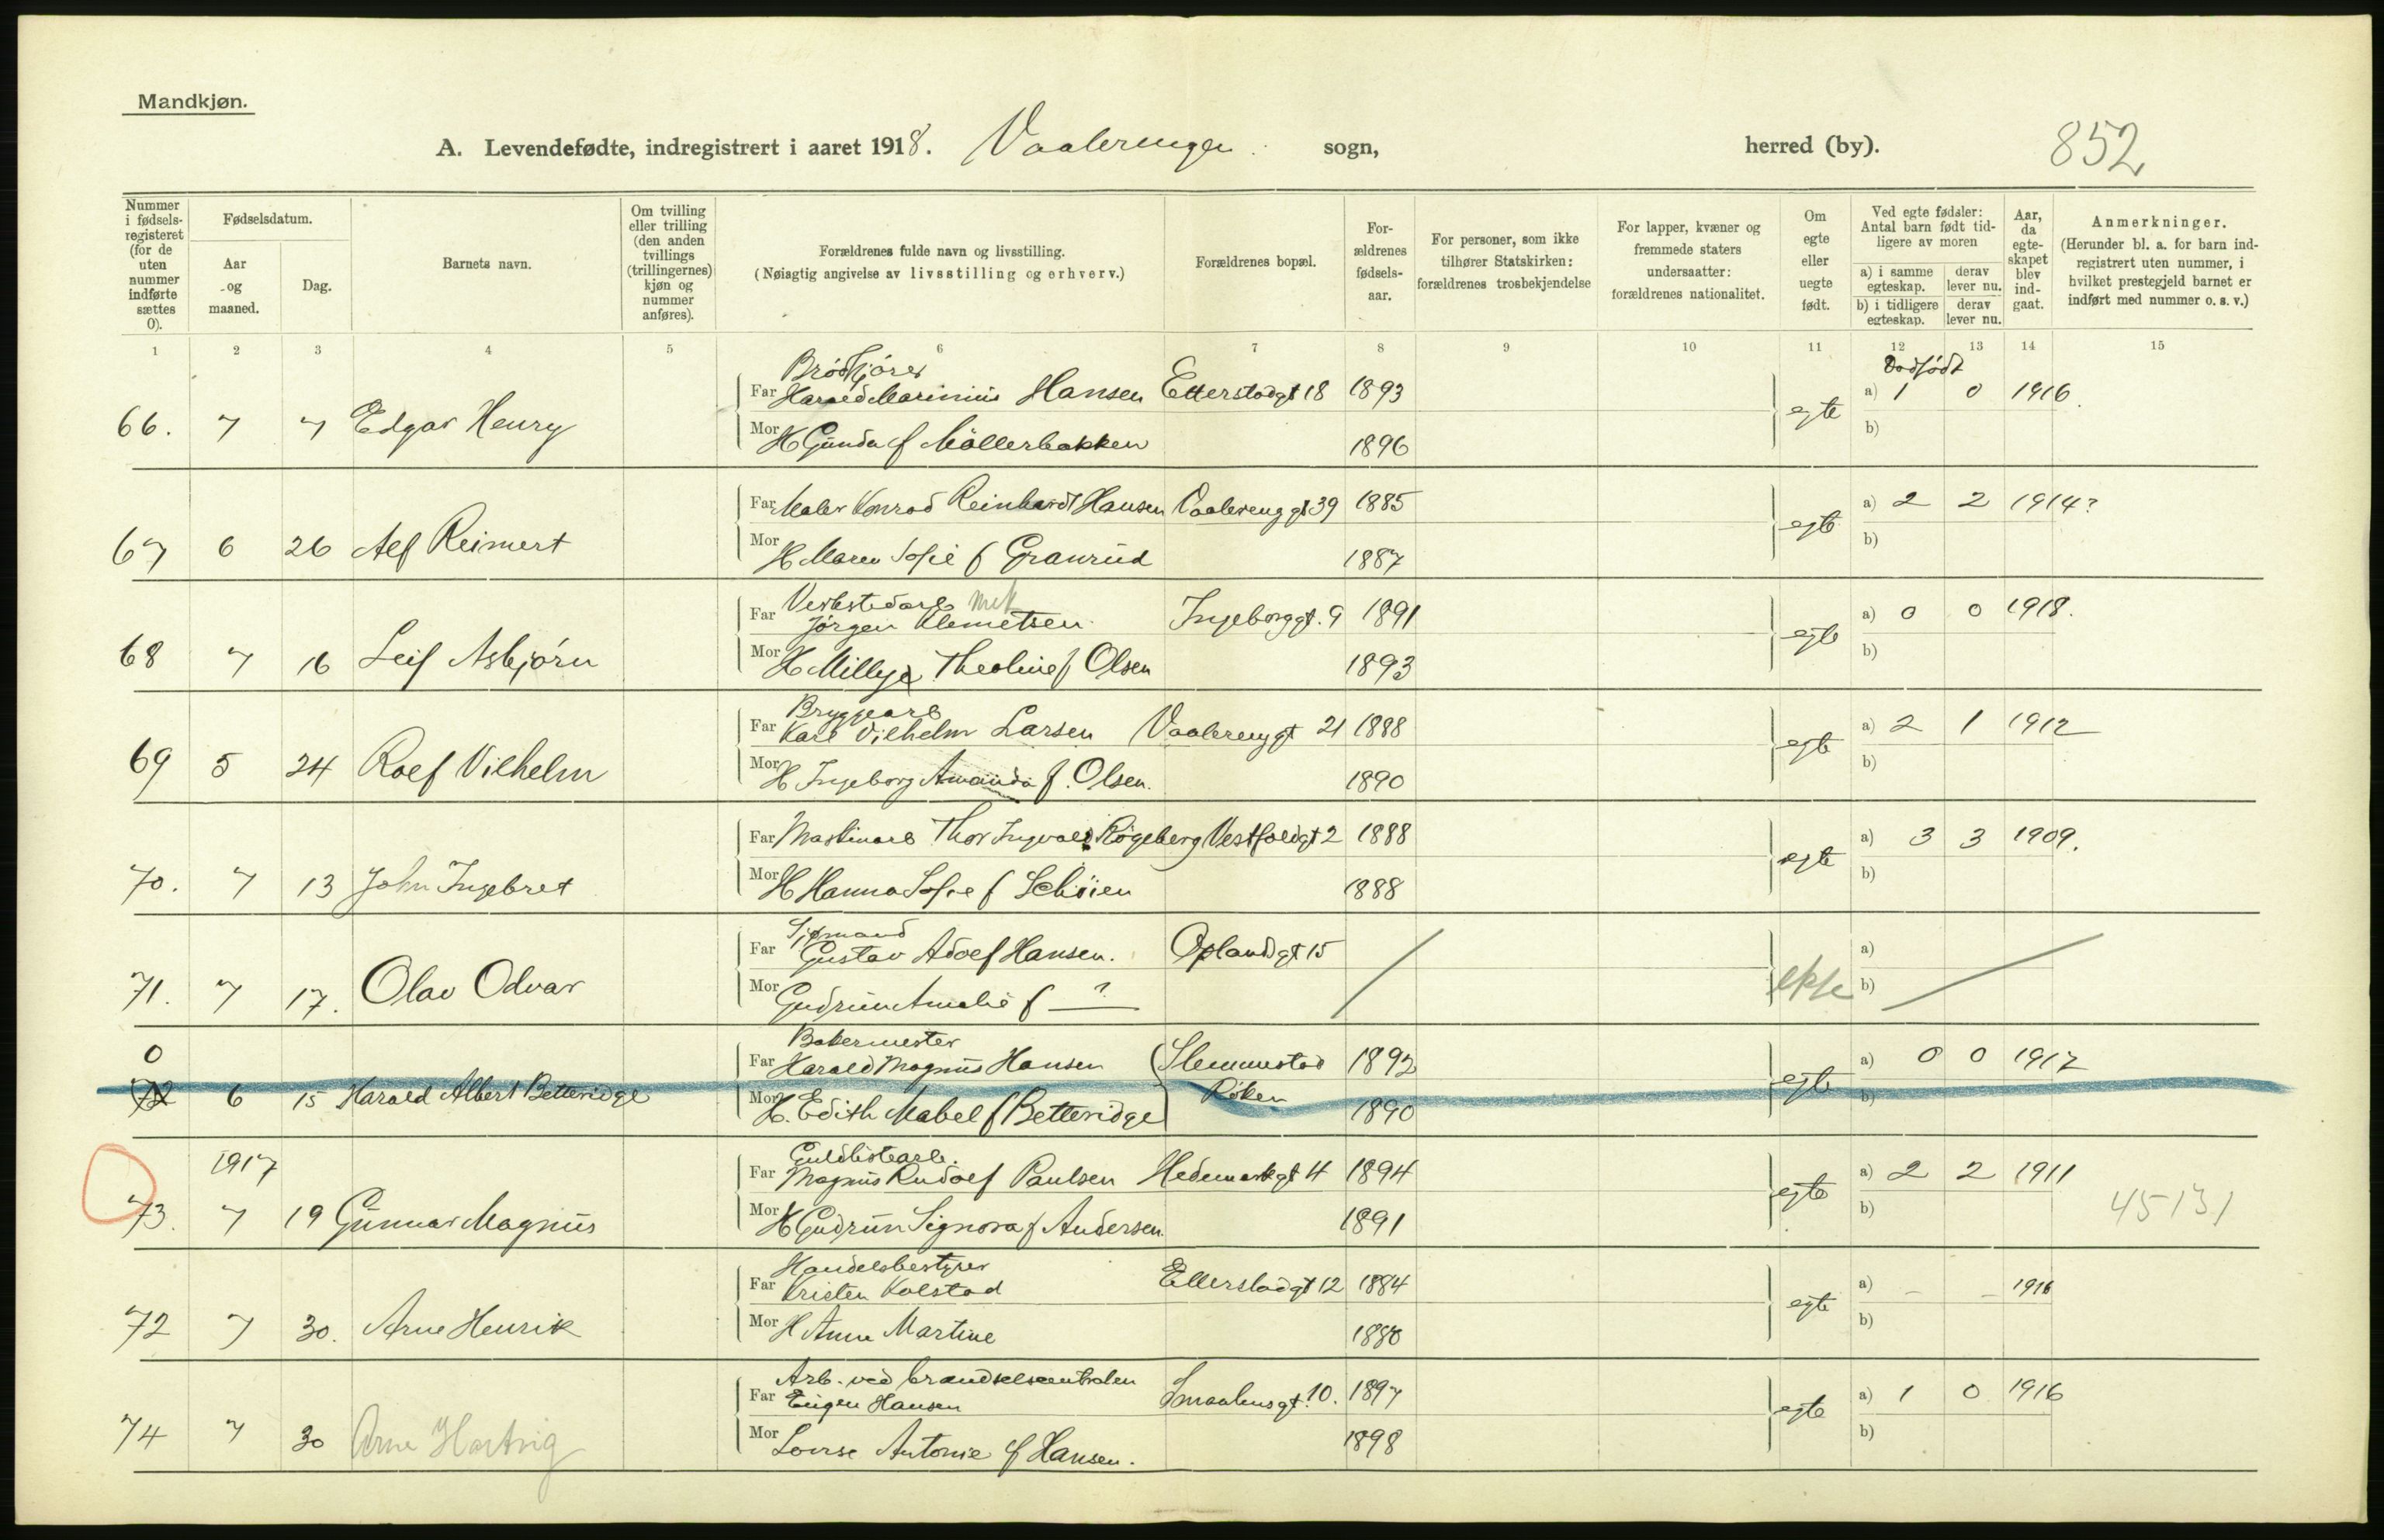 Mandkjøn.
A. Levendefødte, indregistrert i aaret 1918. Vaalerengen sogn, herred (by). 852
Nummer i fødsels-registeret (for de uten nummer indførte sættes 0).
Fødselsdatum.
Aar og maaned.
Dag.
Barnets navn.
Om tvilling eller trilling (den anden tvillings (trillingernes) kjøn og nummer anføres).
Forældrenes fulde navn og livsstilling.
(Nøiagtig angivelse av livsstilling og erhverv.)
Forældrenes bopæl.
For-ældrenes fødsels-aar.
For personer, som ikke tilhører Statskirken: forældrenes trosbekjendelse
For lapper, kvæner og fremmede staters undersaatter: forældrenes nationalitet.
Om egte eller uegte født.
Ved egte fødsler: Antal barn født tid-ligere av moren
a) i samme egteskap. derav lever nu.
b) i tidligere egteskap. derav lever nu.
Aar, da egte-skapet blev ind-gaat.
Anmerkninger.
(Herunder bl. a. for barn ind-registrert uten nummer, i hvilket prestegjeld barnet er indført med nummer o. s. v.)
1 2 3 4 5 6 7 8 9 10 11 12 13 14 15
Brødkjører Dødfødt
Far Harald Marinius Hansen Etterstadgt 18 1893 a) 1 0 1916.
66. 7 7 Edgar Henry egte
Mor H Gunda f Möllerbakken 1896 b)
Far Maler Konrad Reinhardt Hansen Vaalerenggt 39 1885 a) 2 2 1914?
67 6 26 Alf Reimert egte
Mor H Maren Sofie f Granrud 1887 b)
Verkstedarb mek
Far Jørgen Klemetsen Ingeborggt. 9 1891 a) 0 0 1918.
68 7 16 Leif Asbjørn egte
Mor H Milly Theoline f Olsen 1893 b)
Bryggearb
Far Karl Vilhelm Larsen Vaalerenggt 21 1888 a) 2 1 1912
69 5 24 Rolf Vilhelm egte
Mor H Ingeborg Amanda f. Olsen. 1890 b)
Far Maskinarb Thor Ingvald Rögeberg Vestfoldgt 2 1888 a) 3 3 1909.
70. 7 13 John Ingebret egte
Mor H Hanna Sofie f Schöien 1888 b)
Sjømand
Far Gustav Adolf Hansen. Oplandgt 15 a)
71. 7 17. Olav Odvar
Mor Gudrun Amalie f ? b)
0 Bakermester
Far Harald Magnus Hansen Slemmestad 1892 a) 0 0 1917
72 6 15 Harald Albert Betteridge Röken egte
Mor H. Edith Mabel f Betteridge 1890 b)
1917 Guldlistearb.
Far Magnus Rudolf Paulsen Hedemarkgt 4 1894 a) 2 2 1911
73. 7 19 Gunnar Magnus egte 45131
Mor H Gudrun Signora f Andersen. 1891 b)
Handelsbestyrer
Far Kristen Kolstad Etterstadgt 12 1884 a) - - 1916
72 7 30. Arne Henrik egte
Mor H Anna Martine 1880 b)
Arb. ved brændselscentralen
Far Eugen Hansen Smaalensgt. 10. 1897 a) 1 0 1916
74 7 30 Arne Hartvig egte
Mor Lovise Antonie f Hansen. 1898 b)